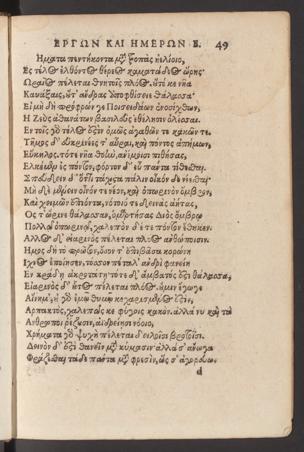 ΕΡΓΩΝ ΚΑΙ ΗΜΕΡΩΝ Β. 49
Ἤματα πεντήκοντα μετὰ ξοπὰς ἠελίοιο,
Ἐς τέλος ἐλθόντος θέρεος καματώδεος ὥρης·
Ὡραῖος πέλεται θνητοῖς πλόος. οὔτέ κε νῆα
Καυάξαις, οὔτ' ἄνδρας ἀποφθίσειε θάλασσα·
Εἰ μὴ δὴ πρόφρων γε Ποσειδάων ἐνοσίχθων,
Ἢ Ζεὺς ἀθανάτων βασιλεὺς ἐθέλησιν ὀλέσσαι.
Ἐν τοῖς γὸ τέλος ἐστὶν ὁμῶς ἀγαθῶν τε κακῶν τε.
Τῆμος δ' εὐκρινέες τ' αὖραι, καὶ πόντος ἀπήμων,
Εὔκηλος. τότε νῆα θοὴν, ἀνέμοισι πιθήσας,
Ἑλκέμεν ἐς πόντον, φόρτον δ' εὖ πάντα τίθεσθαι.
Σπεύδειν δ' ὅττι τάχιστα πάλιν οἶκόν δε νέεσθαι·
Μὴ δὲ μένειν οἶνόν τε νέον, καὶ ὀπωρινὸν ὄμβρον,
Καὶ χειμῶν' ἐπιόντα, νότοιό τε δεινὰς ἀήτας,
Ὅς τ' ὤρινε θάλασσαν, ὁμαρτήσας Διὸς ὄμβρῳ
Πολλῷ ὀπωρινῷ, χαλεπὸν δέ τε πόντον ἔθηκεν.
Ἄλλος δ' εἰαρινὸς πέλεται πλόος ἀνθρώποισιν.
Ἦμος δὴ τὸ πρῶτον, ὅσον τ' ἐπιβᾶσα κορώνη
Ἴχνος ἐποίησεν, τόσσον πέταλ' ἀνδρὶ φανείη
Ἐν κράδῃ ἀκροτάτῃ· τότε δ' ἄμβατός ἐστι θάλασσα,
Εἰαρινὸς δ' οὗτος πέλεται πλόος. οὔ μιν ἔγωγε
Αἴνημ', οὐ γὸ ἐμῷ θυμῷ κεχαρισμένος ἐστὶν,
Ἁρπακτός. χαλεπῶς κε φύγοις κακόν. ἀλλά νυ καὶ τὰ
Ἄνθρωποι ῥέζουσιν, ἀϊδρείῃσι νόοιο,
Χρήματα γὸ ψυχὴ πέλεται δειλοῖσι βροτοῖσι.
Δεινὸν δ' ἐστὶ θανεῖν μετὰ κύμασιν· ἀλλά σ' ἄνωγα
Φράζεσθαι τάδε πάντα μετὰ φρεσὶν, ὥς σ' ἀγορεύω.
d